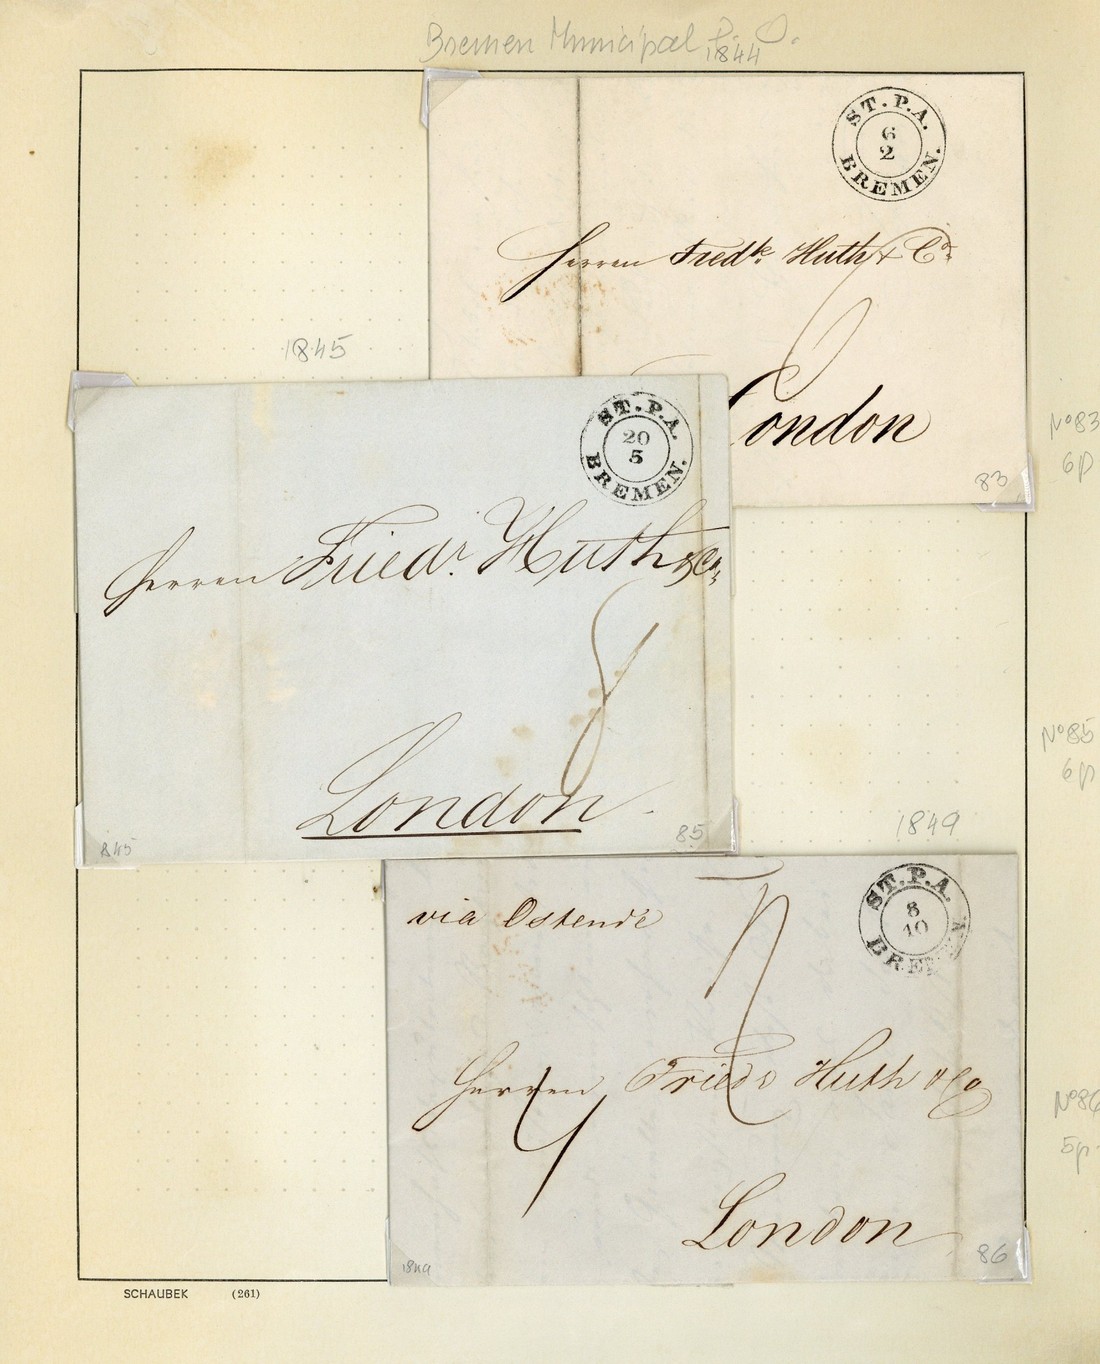 Bremen Municipal P. O.
1844
ST. P. A.
6
2
BREMEN.
Herren Fredk. Huth & Co.
London
83
No 83
6p
1845
ST. P. A.
20
5
BREMEN.
Herren Friedr. Huth & Co.
8
London
845
85
No 85
6p
1849
ST. P. A.
8
10
BREMEN.
via Ostende
Herren Friedr Huth & Co
London
1849
86
No 86
5p
SCHAUBEK (261)